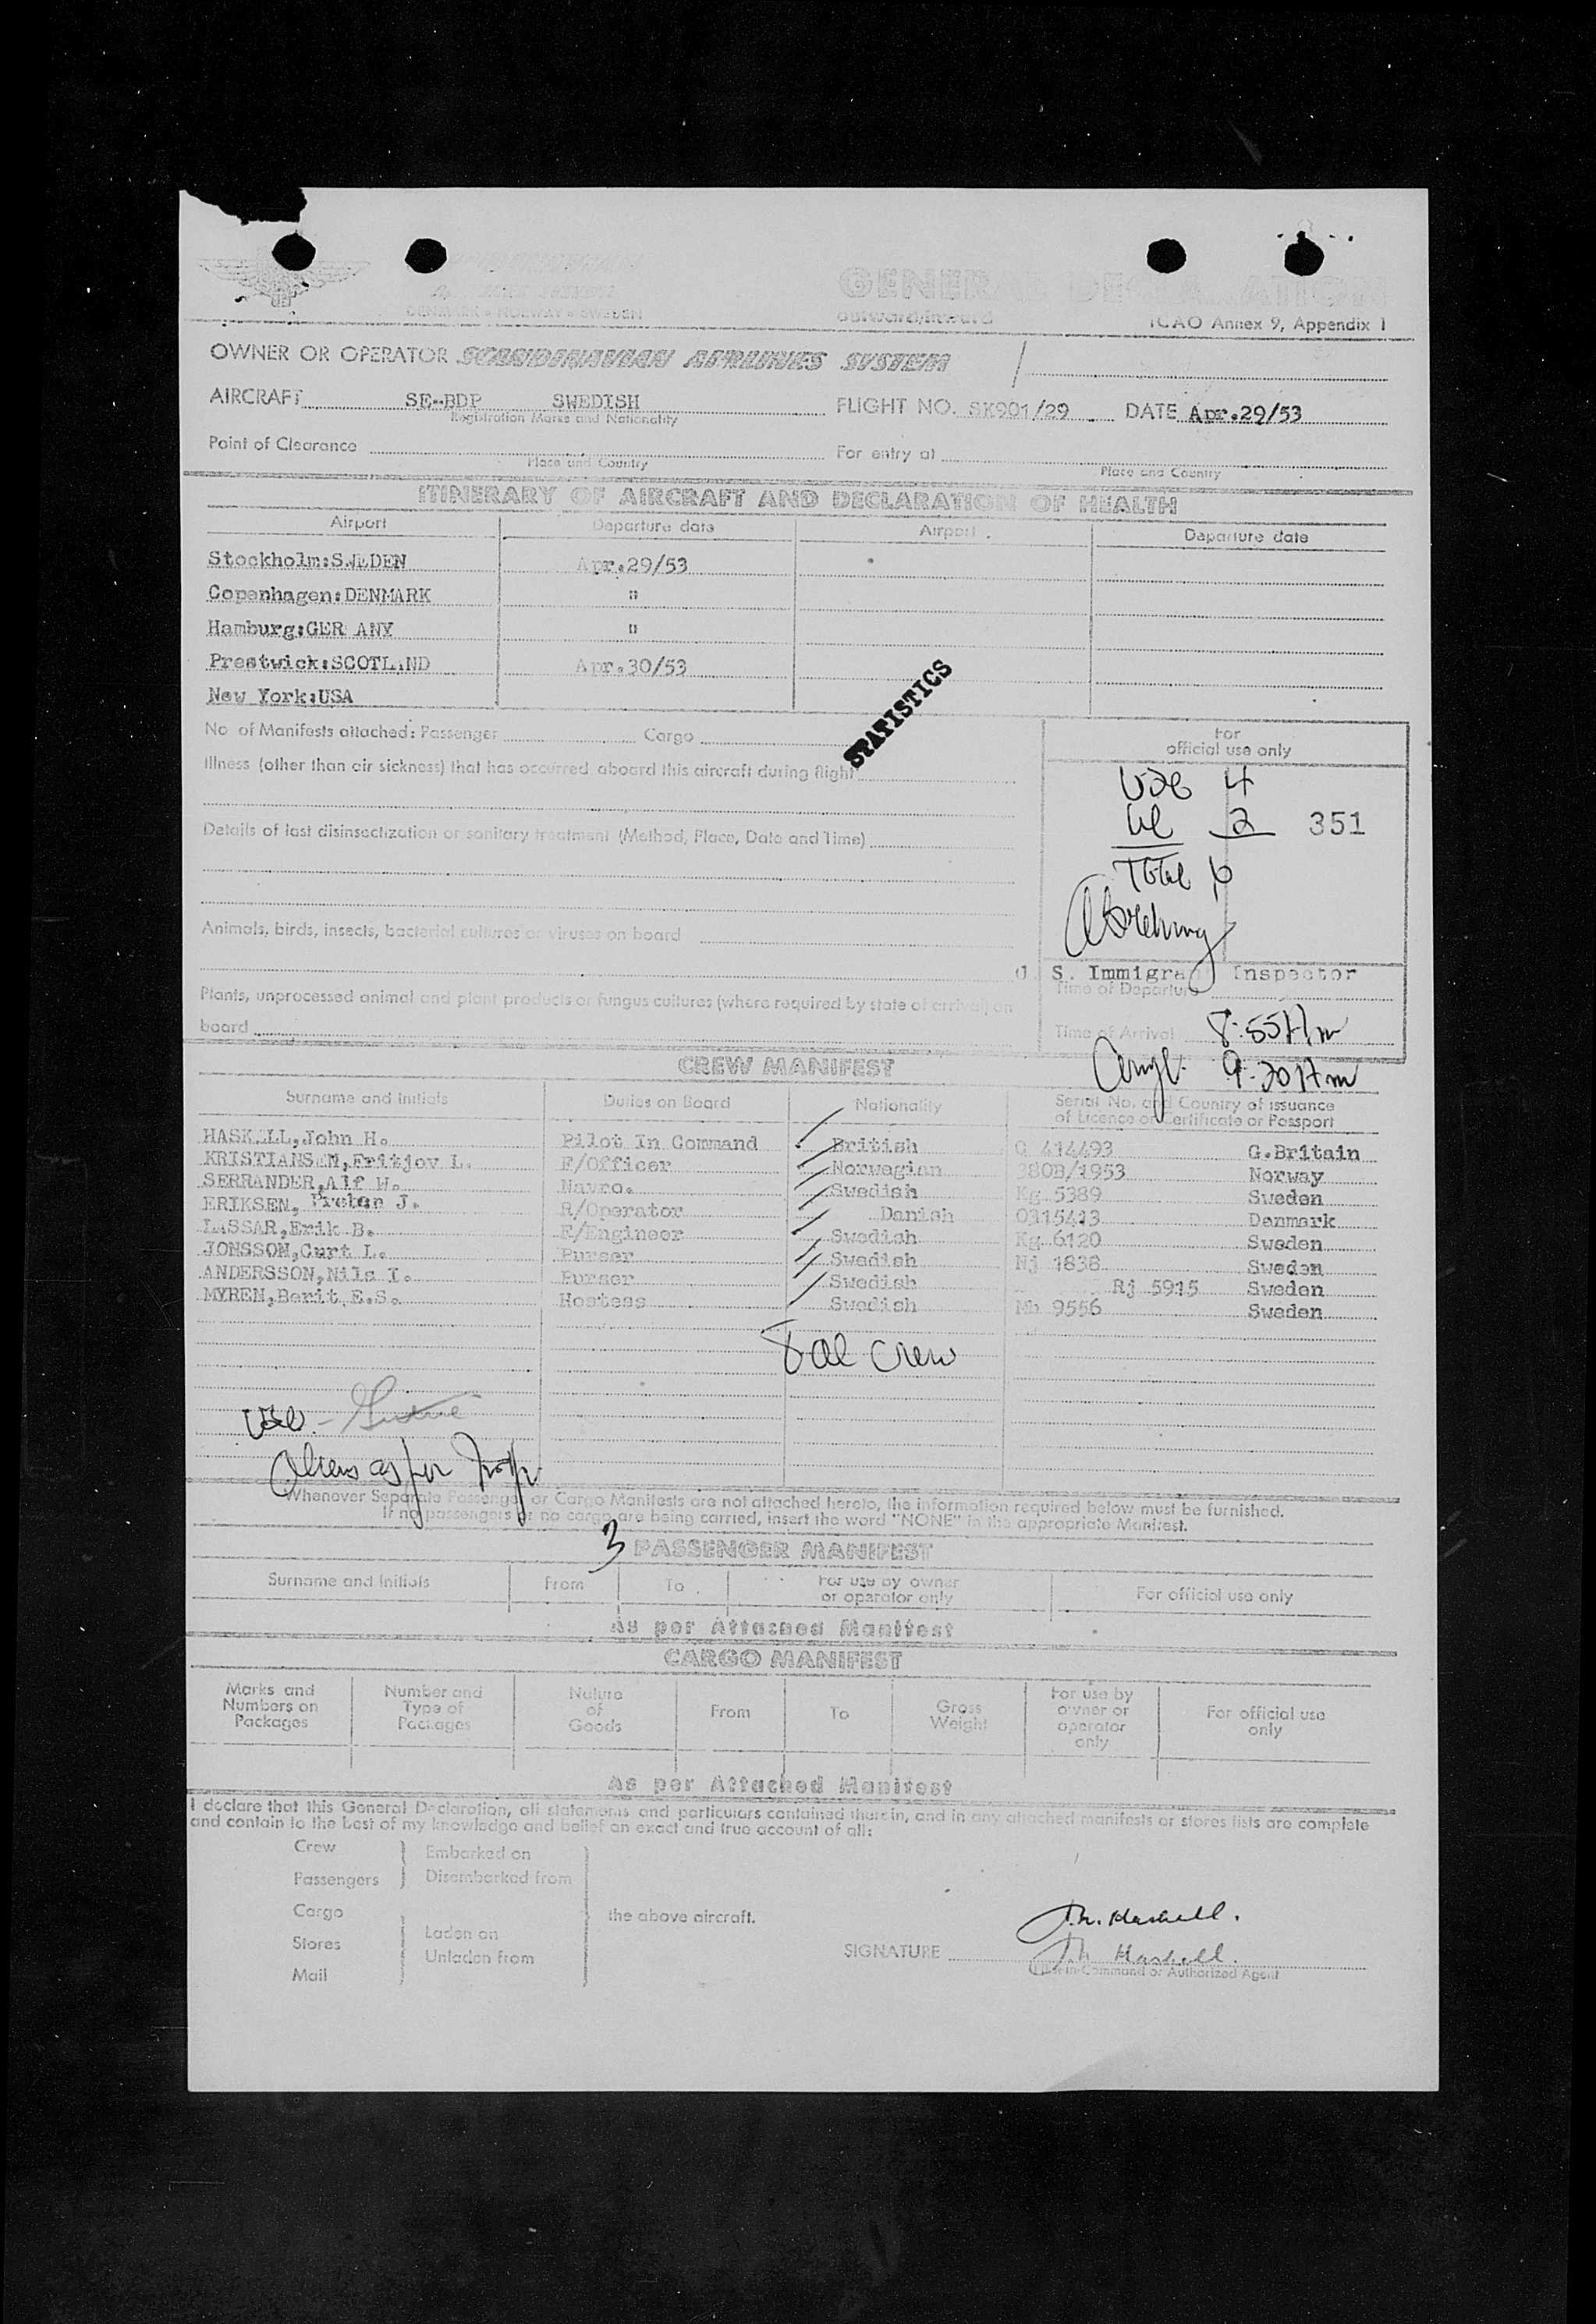 DENMARK - NORWAY - SWEDEN
GENERAL DECLARATION
outward/inward
ICAO Annex 9, Appendix 1
OWNER OR OPERATOR SCANDINAVIAN AIRLINES SYSTEM
AIRCRAFT SE-BDP SWEDISH FLIGHT NO. SK901/29 DATE Apr.29/53
Registration Marks and Nationality
Point of Clearance For entry at
Place and Country Place and Country
ITINERARY OF AIRCRAFT AND DECLARATION OF HEALTH
Airport Departure date Airport Departure date
Stockholm:SWEDEN Apr.29/53
Copenhagen:DENMARK "
Hamburg:GER ANY "
Prestwick:SCOTLAND Apr.30/53
New York:USA
STATISTICS
No of Manifests attached: Passenger Cargo
For
official use only
Illness (other than air sickness) that has occurred aboard this aircraft during flight
USC 4
2 351
Details of last disinsectization or sanitary treatment (Method, Place, Date and Time)
Total 6
Animals, birds, insects, bacterial cultures or viruses on board
U. S. Immigrant Inspector
Time of Departure
Plants, unprocessed animal and plant products or fungus cultures (where required by state of arrival) on
board
Time of Arrival 8:55 Am
9:20 Am
CREW MANIFEST
Surname and Initials Duties on Board Nationality Serial No. and Country of issuance
of Licence or Certificate or Passport
HASKELL,John H. Pilot In Command British Q 414493 G.Britain
KRISTIANSEN,Fritjov L. F/Officer Norwegian 380B/1953 Norway
SERRANDER,Alf W. Navro. Swedish Kg 5389 Sweden
ERIKSEN, Preben J. R/Operator Danish 0315413 Denmark
LASSAR,Erik B. E/Engineer Swedish Kg 6120 Sweden
JONSSON,Curt L. Purser Swedish Nj 1838 Sweden
ANDERSSON,Nils I. Purser Swedish Rj 5915 Sweden
MYREN,Berit E.S. Hostess Swedish Mb 9556 Sweden
8 al crew
USC -
Aliens as per
Whenever Separate Passenger or Cargo Manifests are not attached hereto, the information required below must be furnished.
If no passengers or no cargo are being carried, insert the word "NONE" in the appropriate Manifest.
3 PASSENGER MANIFEST
Surname and Initials From To For use by owner
or operator only For official use only
As per Attached Manifest
CARGO MANIFEST
Marks and
Numbers on
Packages Number and
Type of
Packages Nature
of
Goods From To Gross
Weight For use by
owner or
operator
only For official use
only
As per Attached Manifest
I declare that this General Declaration, all statements and particulars contained therein, and in any attached manifests or stores lists are complete
and contain to the best of my knowledge and belief an exact and true account of all:
Crew Embarked on
Passengers Disembarked from
Cargo the above aircraft.
Laden on
Stores
Unladen from
Mail
J.H. Haskell.
SIGNATURE J.H. Haskell.
Pilot-in-Command or Authorized Agent